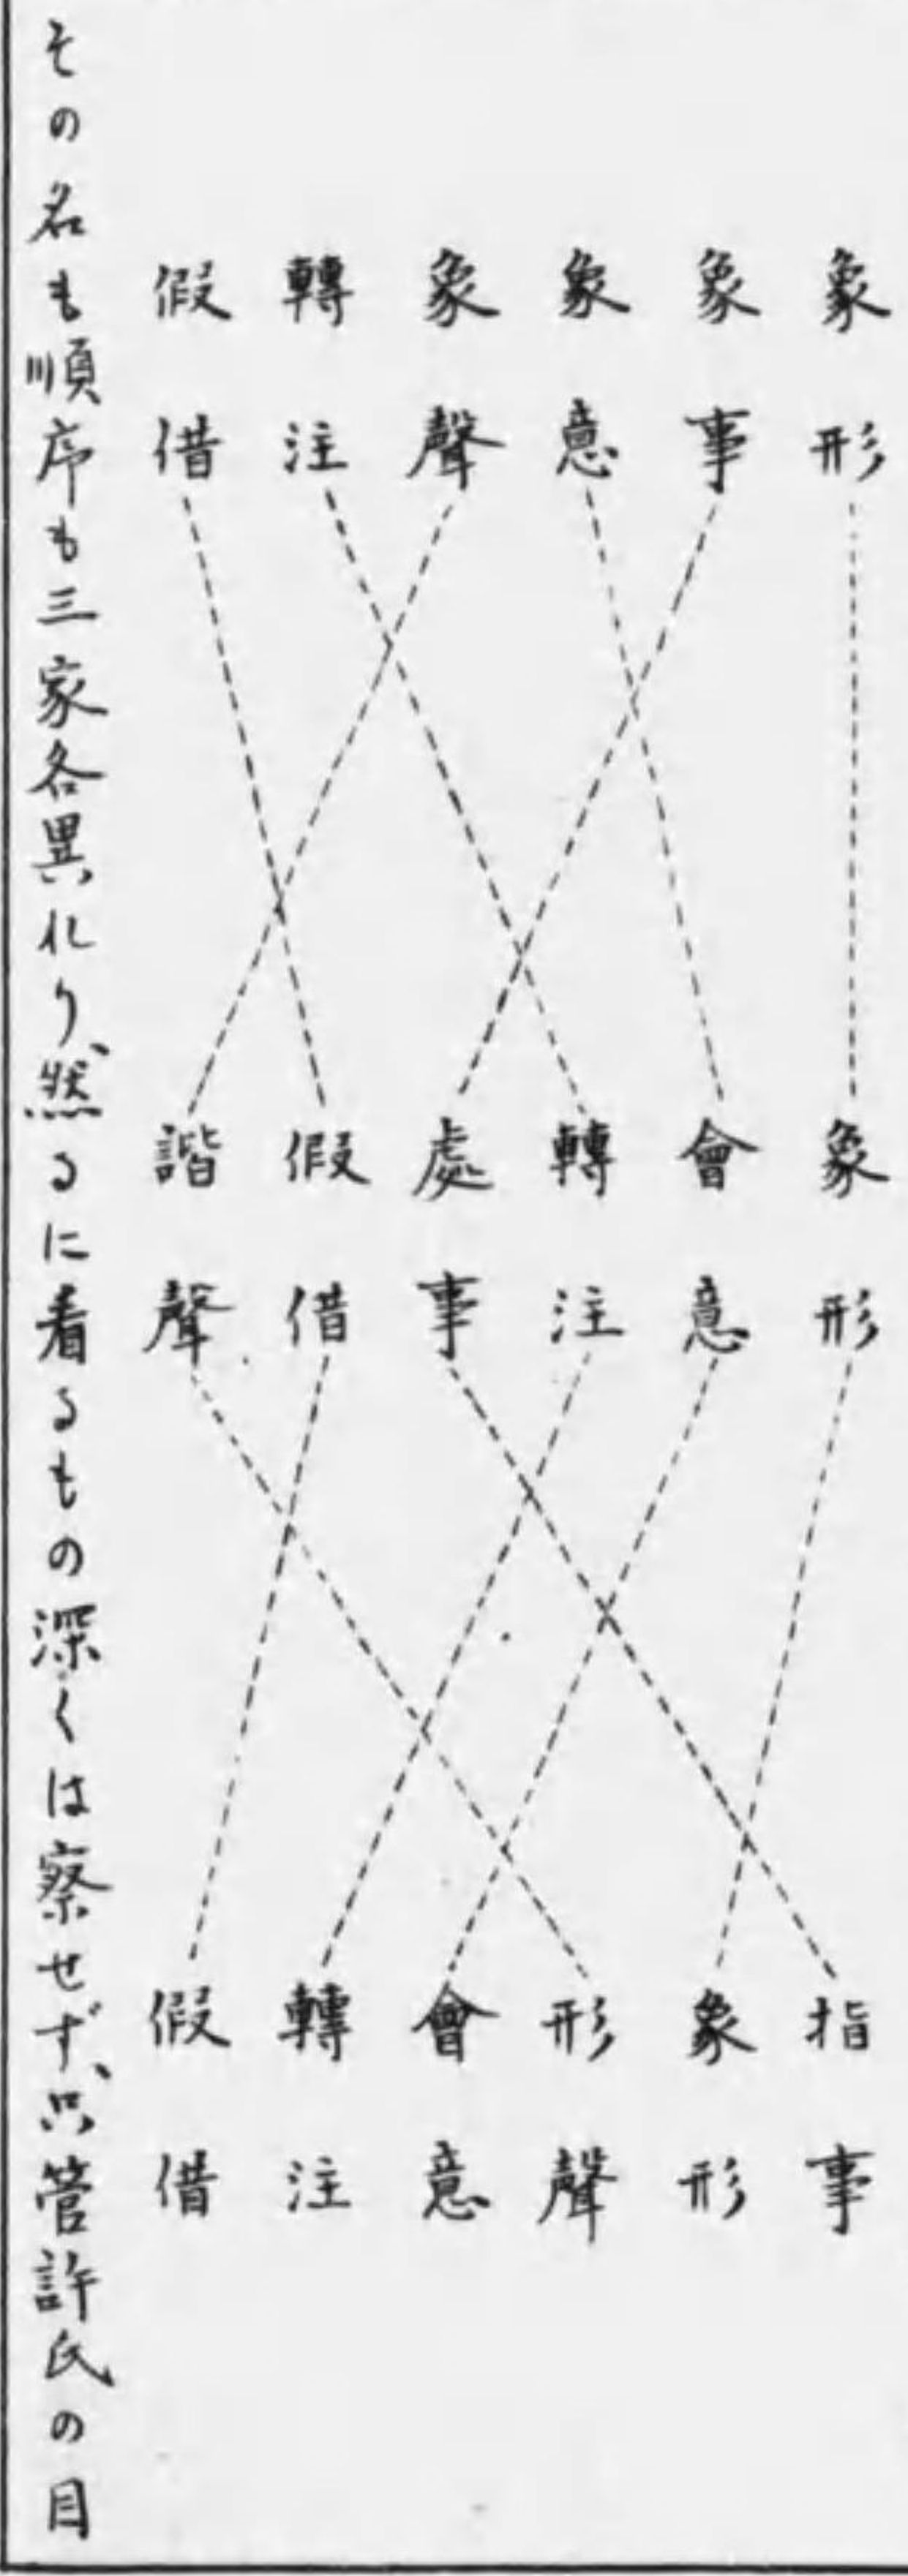 象形
象事
象意
象聲
轉注
假借
象形
會意
轉注
處事
假借
諧聲
指事
象形
形聲
會意
轉注
假借
その名も順序も三家各異れり、然るに着るもの深くは察せず、只管許氏の目